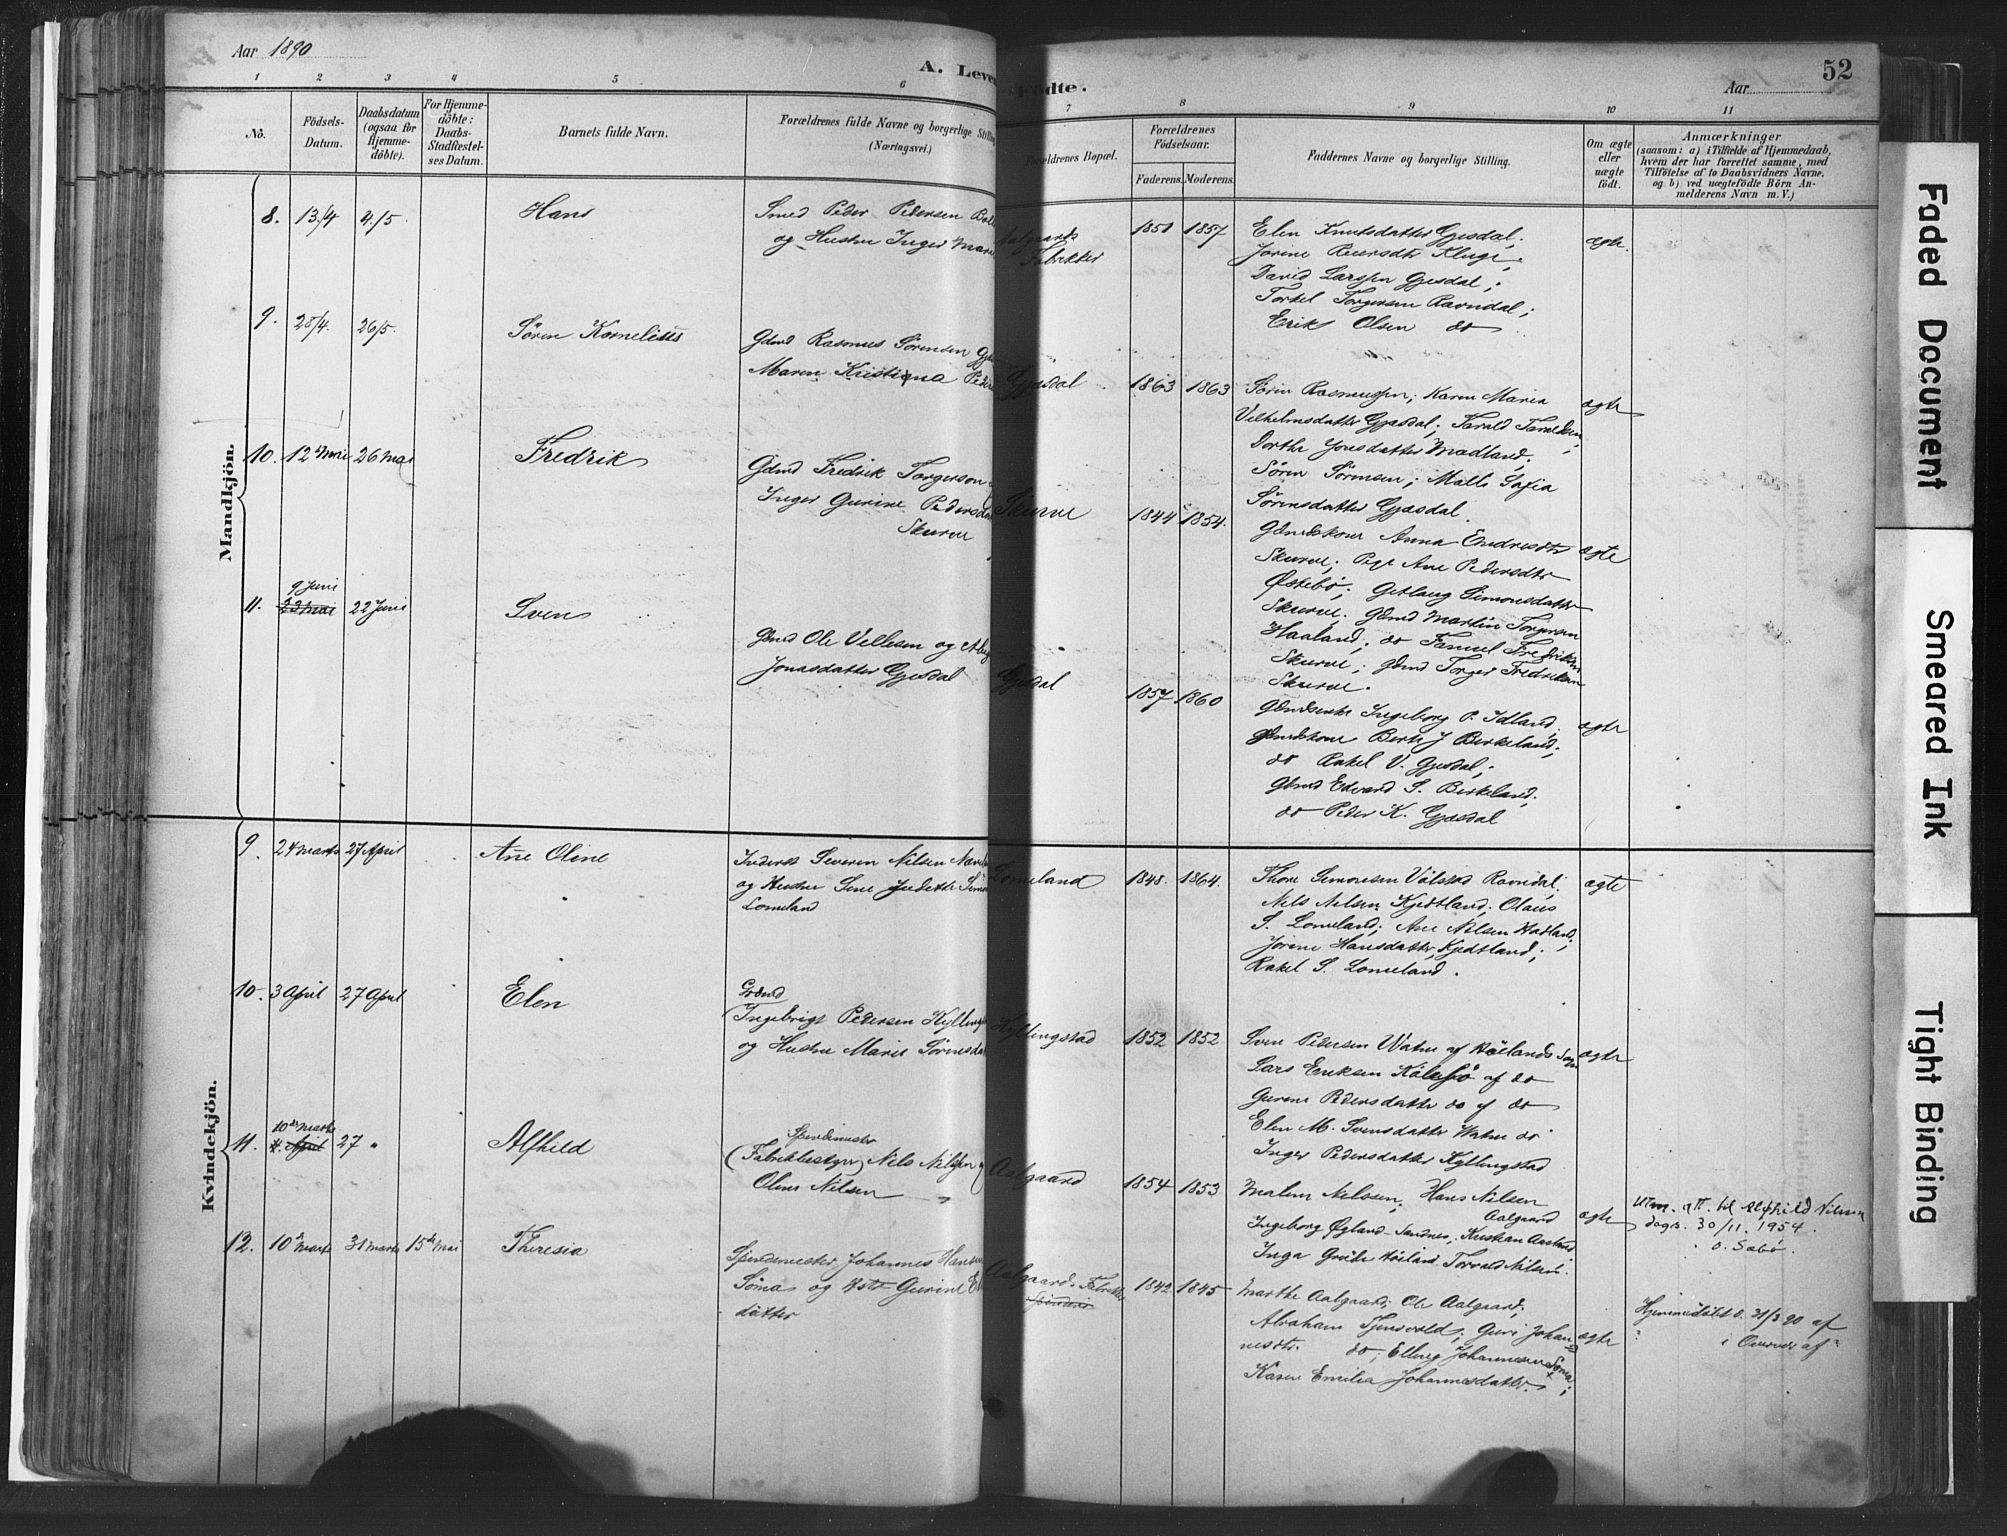 Aar 1890
A. Leve
ødte.
Aar
52
1 2 3 4 5 6 7 8 9 10 11
No.
Fødsels-
Datum.
Daabsdatum
(ogsaa for
Hjemme-
døbte).
For Hjemme-
døbte:
Daabs-
Stadfæstel-
ses Datum.
Barnets fulde Navn.
Forældrenes fulde Navne og borgerlige Stilling
(Næringsvei.)
Forældrenes Bopæl.
Forældrenes
Fødselsaar.
Faderens. Moderens.
Faddernes Navne og borgerlige Stilling.
Om ægte
eller
uægte
født.
Anmærkninger
(saasom: a) i Tilfælde af Hjemmedaab,
hvem der har forrettet samme, med
Tilføielse af to Daabsvidners Navne.
og b) ved uægtefødte Børn An-
melderens Navn m. V.)
Mandkjön.
8. 13/4 4/5 Hans
Smed Peder Pedersen
og Hustru Inger Marie
Aalgaards
Fabrikker
1851 1857
Elen Knutsdatter Gjesdal;
Jorine Reiersdtr Kluge;
David Larssen Gjesdal;
Torkel Torgersen Ravndal;
Erik Olsen do
ægte.
9. 28/4. 26/5. Søren Kornelius
Gdmd Rasmus Sørensen
Maren Kristiana
Gjesdal
1863 1863
Søren Rasmussen; Karen Maria
Vilhelmsdatter Gjesdal;
Dorthe Jonsdatter Madland;
Søren Sørensen; Malli Sofia
Sørensdatter Gjesdal.
ægte
10. 12 Mai 26 Mai Fredrik
Gdmd Fredrik Torgersen
Inger Gurine Pedersdat
Skurve
Skurve
1844 1854.
Gdmdskone Anna Endresdtr
Skurve; Pige Ane Pedersdtr
Østebø; Getlaug Simonsdatter
Skurve; Gdmd Martin Torgersen
Haaland; do Samuel Fredriksen
Skurve; Gdmd Torger Fredriksen
Skurve.
ægte
11. 9 Juni
23 Mai 22 Juni Sven
Gdmd Ole Vellesen og
Jonasdatter Gjesdal
Gjesdal
1857 1860
Ingeborg P. Idland;
Gdmdskone Berte J Birkeland;
do Rakel V. Gjesdal;
Gdmd Edvard S. Birkeland;
do Peder K. Gjesdal
ægte
Kvindekjön.
9. 24 Marts 27 April Ane Oline
Inderst Severin Nilsen
og Hustru Sine Judithe
Lomeland
Lomeland
1848. 1864.
Thore Simonsen Ravndal;
Nils Nilsen Kjedtland; Olaus
S. Lomeland; Ane Nilsen Madland;
Jorine Hansdatter Kjedtland;
Rakel S. Lomeland.
ægte
10. 3 April 27 April Elen
Grdmd
Ingebrigt Pedersen Kylling
og Hustru Marie Sørensda
Kyllingstad
1852 1852
Sven Pedersen Watne af Høilands Sogn
Lars Eriksen af do
Gurine Pedersdatter do af do
Elen M. Svensdatter Watne do
Inger Pedersdatter Kyllingstad
ægte
11. 10de Marts
4. April 27 " Alfhild
Spindemester
(Fabrikbestyrer) Nils Nilssen
Oline Nilsen
Aalgaard
1854 1853
Malene Nilssen; Hans Nilsen
Aalgaard
Ingeborg Øgland Sandnes; Kristian Aarstad
Inga Høiland; Torvald Nilsen.
ægte
Utm. att. til Alfhild Nilsen
dags. 30/11. 1954.
O. Sabø.
12. 10de Marts 31 Marts 15de Mai Theresia
Spindemester Johannes Hansen
Søma og Hstr Gurine
datter
Aalgaards Fabrikker
1842 1845
Marthe Aalgaard; Ole Aalgaard;
Abraham Tjensvold; Guri Johan-
nesdtr. do; Elling Johannessen Søma;
Karen Emilia Johannesdatter.
ægte
Hjemmedøbt d. 31/3 90 af
?
i Overvær af ?
Faded Document
Smeared Ink
Tight Binding